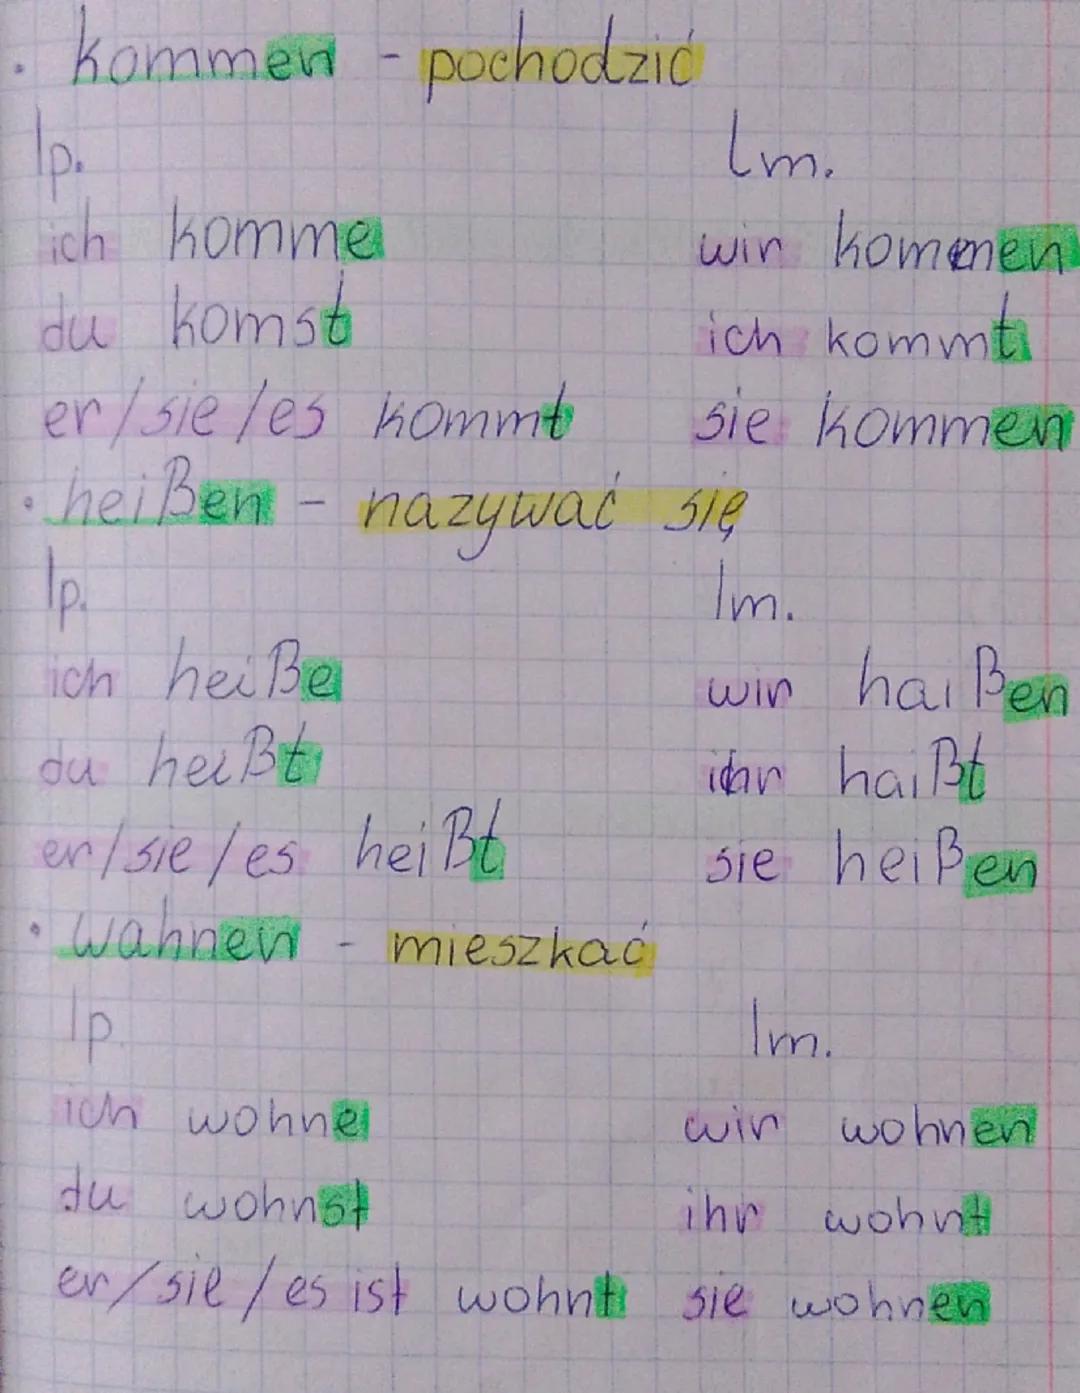 • kommen - pochodzić
lp. lm.
ich komme wir kommen
du komst ich kommt
er/sie/es kommt sie kommen
• heißen - nazywać się
lp. lm.
ich heiße wir haißen
du heißt ihr haißt
er/sie/es heißt sie heißen
• wahnen - mieszkać
lp. lm.
ich wohne wir wohnen
du wohnst ihr wohnt
er/sie/es ist wohnt sie wohnen